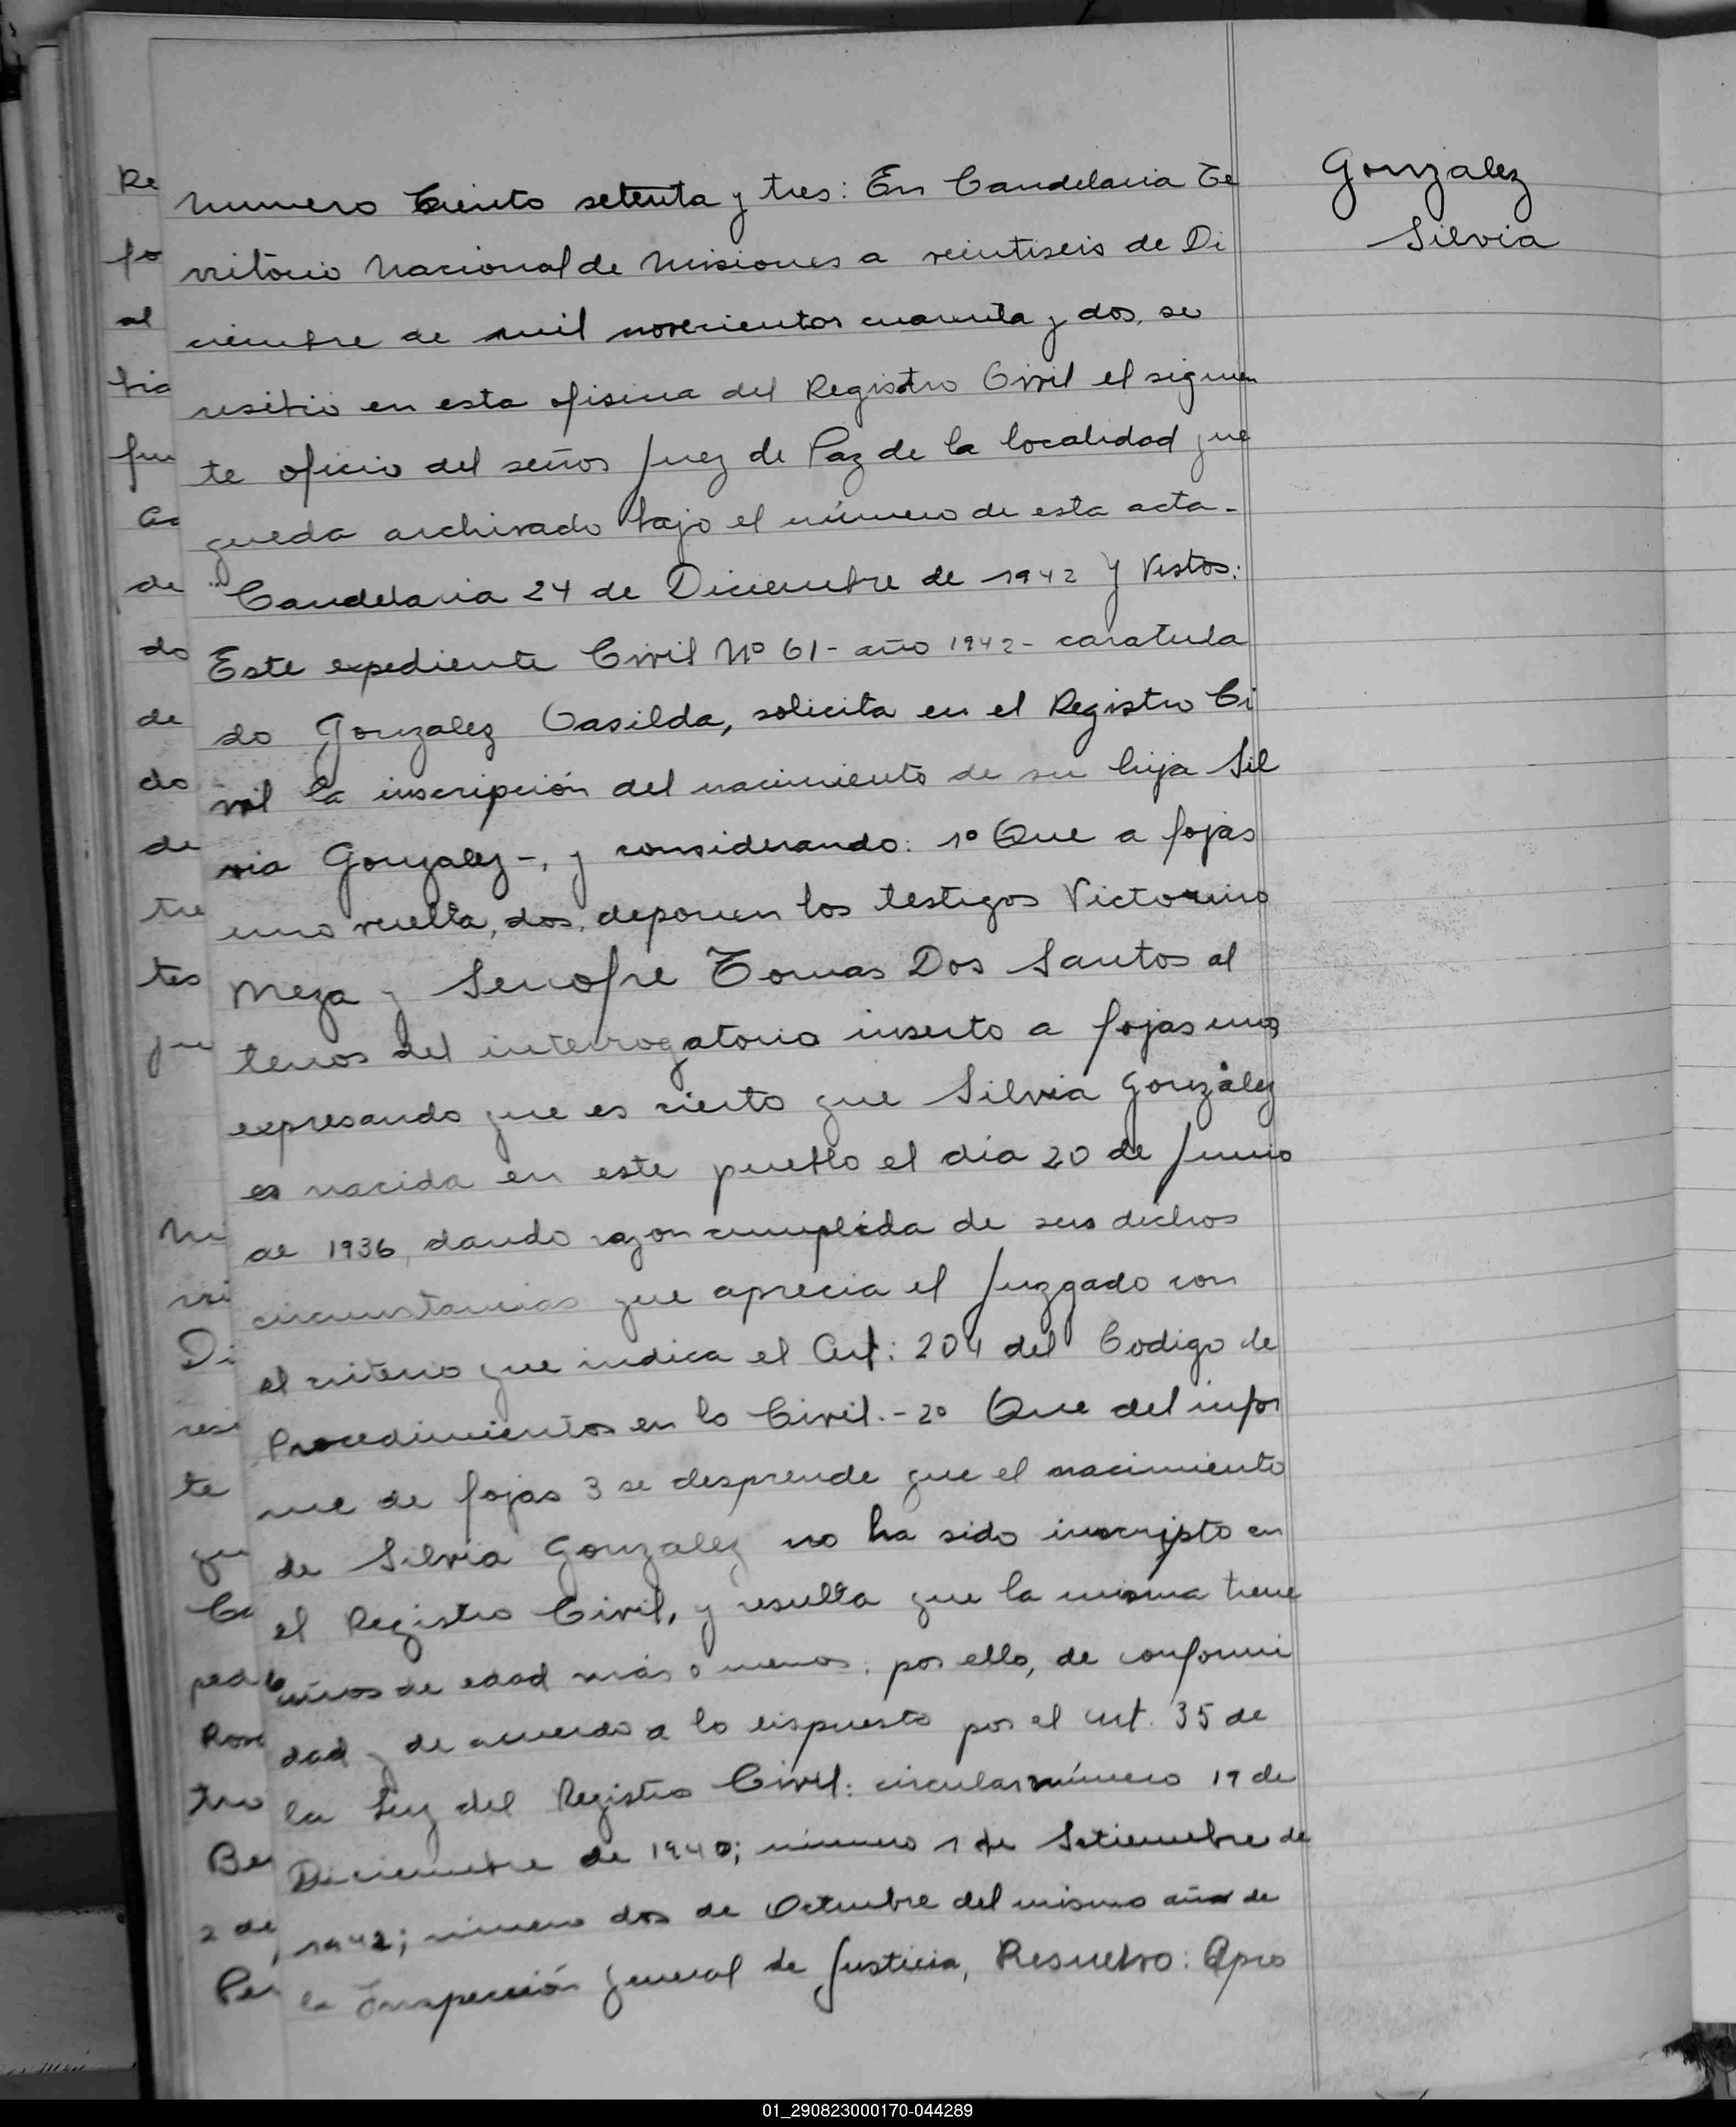 Gonzalez
Silvia
Numero Ciento setenta y tres: En Candelaria Te
rritorio Nacional de Misiones a veintiseis de Di
ciembre de mil novecientos cuarenta y dos, se
resibió en esta ofisina del Registro Civil el siguien
te oficio del señor Juez de Paz de la localidad que
queda archivado bajo el número de esta acta.-
"Candelaria 24 de Diciembre de 1942 Y Vistos:
Este expediente Civil Nº 61- año 1942- caratula
do Gonzalez Casilda, solicita en el Registro Ci
vil la inscripción del nacimiento de su hija Sil
via Gonzalez-, y considerando: 1º Que a fojas
uno vuelta, dos, deponen los testigos Victorino
Meza y Senofre Tomas Dos Santos al
tenor del interrogatorio inserto a fojas uno,
expresando que es cierto que Silvia González
es nacida en este pueblo el día 20 de Junio
de 1936, dando razon cumplida de sus dichos
circunstancias que aprecia el Juzgado con
el criterio que indica el Art: 204 del Codigo de
Procedimientos en lo Civil.- 2º Que del infor
me de fojas 3 se desprende que el nacimiento
de Silvia Gonzalez no ha sido inscripto en
el Registro Civil, y resulta que la misma tiene
6 años de edad más o menos; por ello, de conformi
dad y de acuerdo a lo dispuesto por el art. 35 de
la Ley del Registro Civil: circular número 19 de
Diciembre de 1940; número 1 de Setiembre de
1942; número dos de Octubre del mismo año de
la Inspección General de Justicia, Resuelvo: Apro
Re
fo
al
bio
fun
Ac
de
do
de
do
de
tre
tes
que
Nu
rri
Di
resi
te
que
Ca
pedi
Rose
tro
Be
2 de
Per
01_290823000170-044289